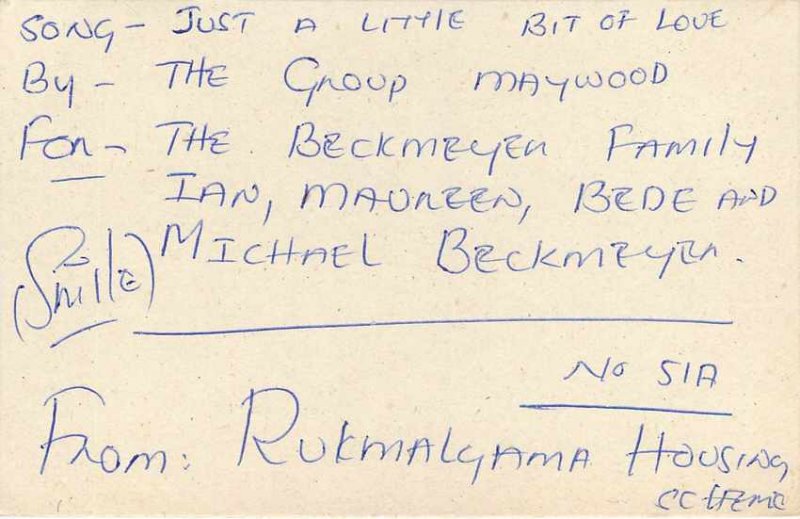 SONG - JUST A LITTLE BIT OF LOVE
By - THE Group MAYWOOD
FOR - THE BECKMEYER FAMILY
IAN, MAUREEN, BEDE AND
MICHAEL BECKMEYER.
(Smile)
NO 51A
From: RUKMALGAMA HOUSING
SCHEME